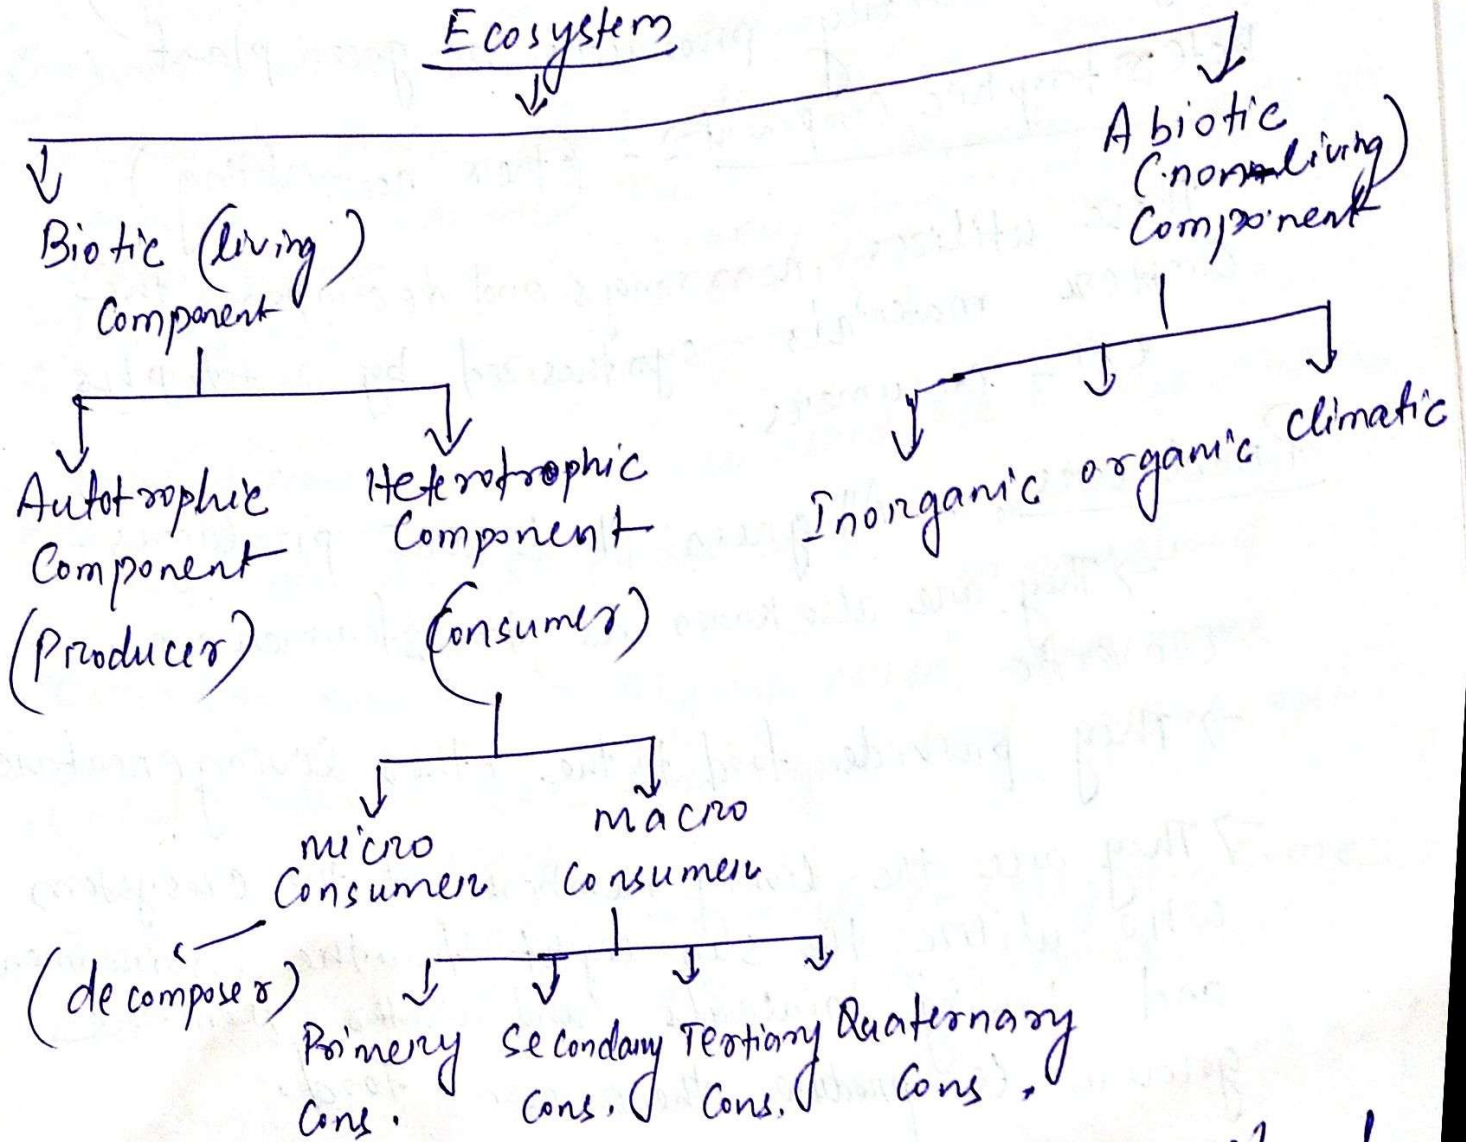 Ecosystem
Abiotic
(non-living)
Component
Biotic (living)
Component
Autotrophic
Component
(Producer)
Heterotrophic
Component
(Consumer)
Inorganic organic climatic
micro
Consumer
macro
Consumer
(decomposer)
Primery
Cons.
Secondary
Cons.
Tertiary
Cons.
Quaternary
Cons.